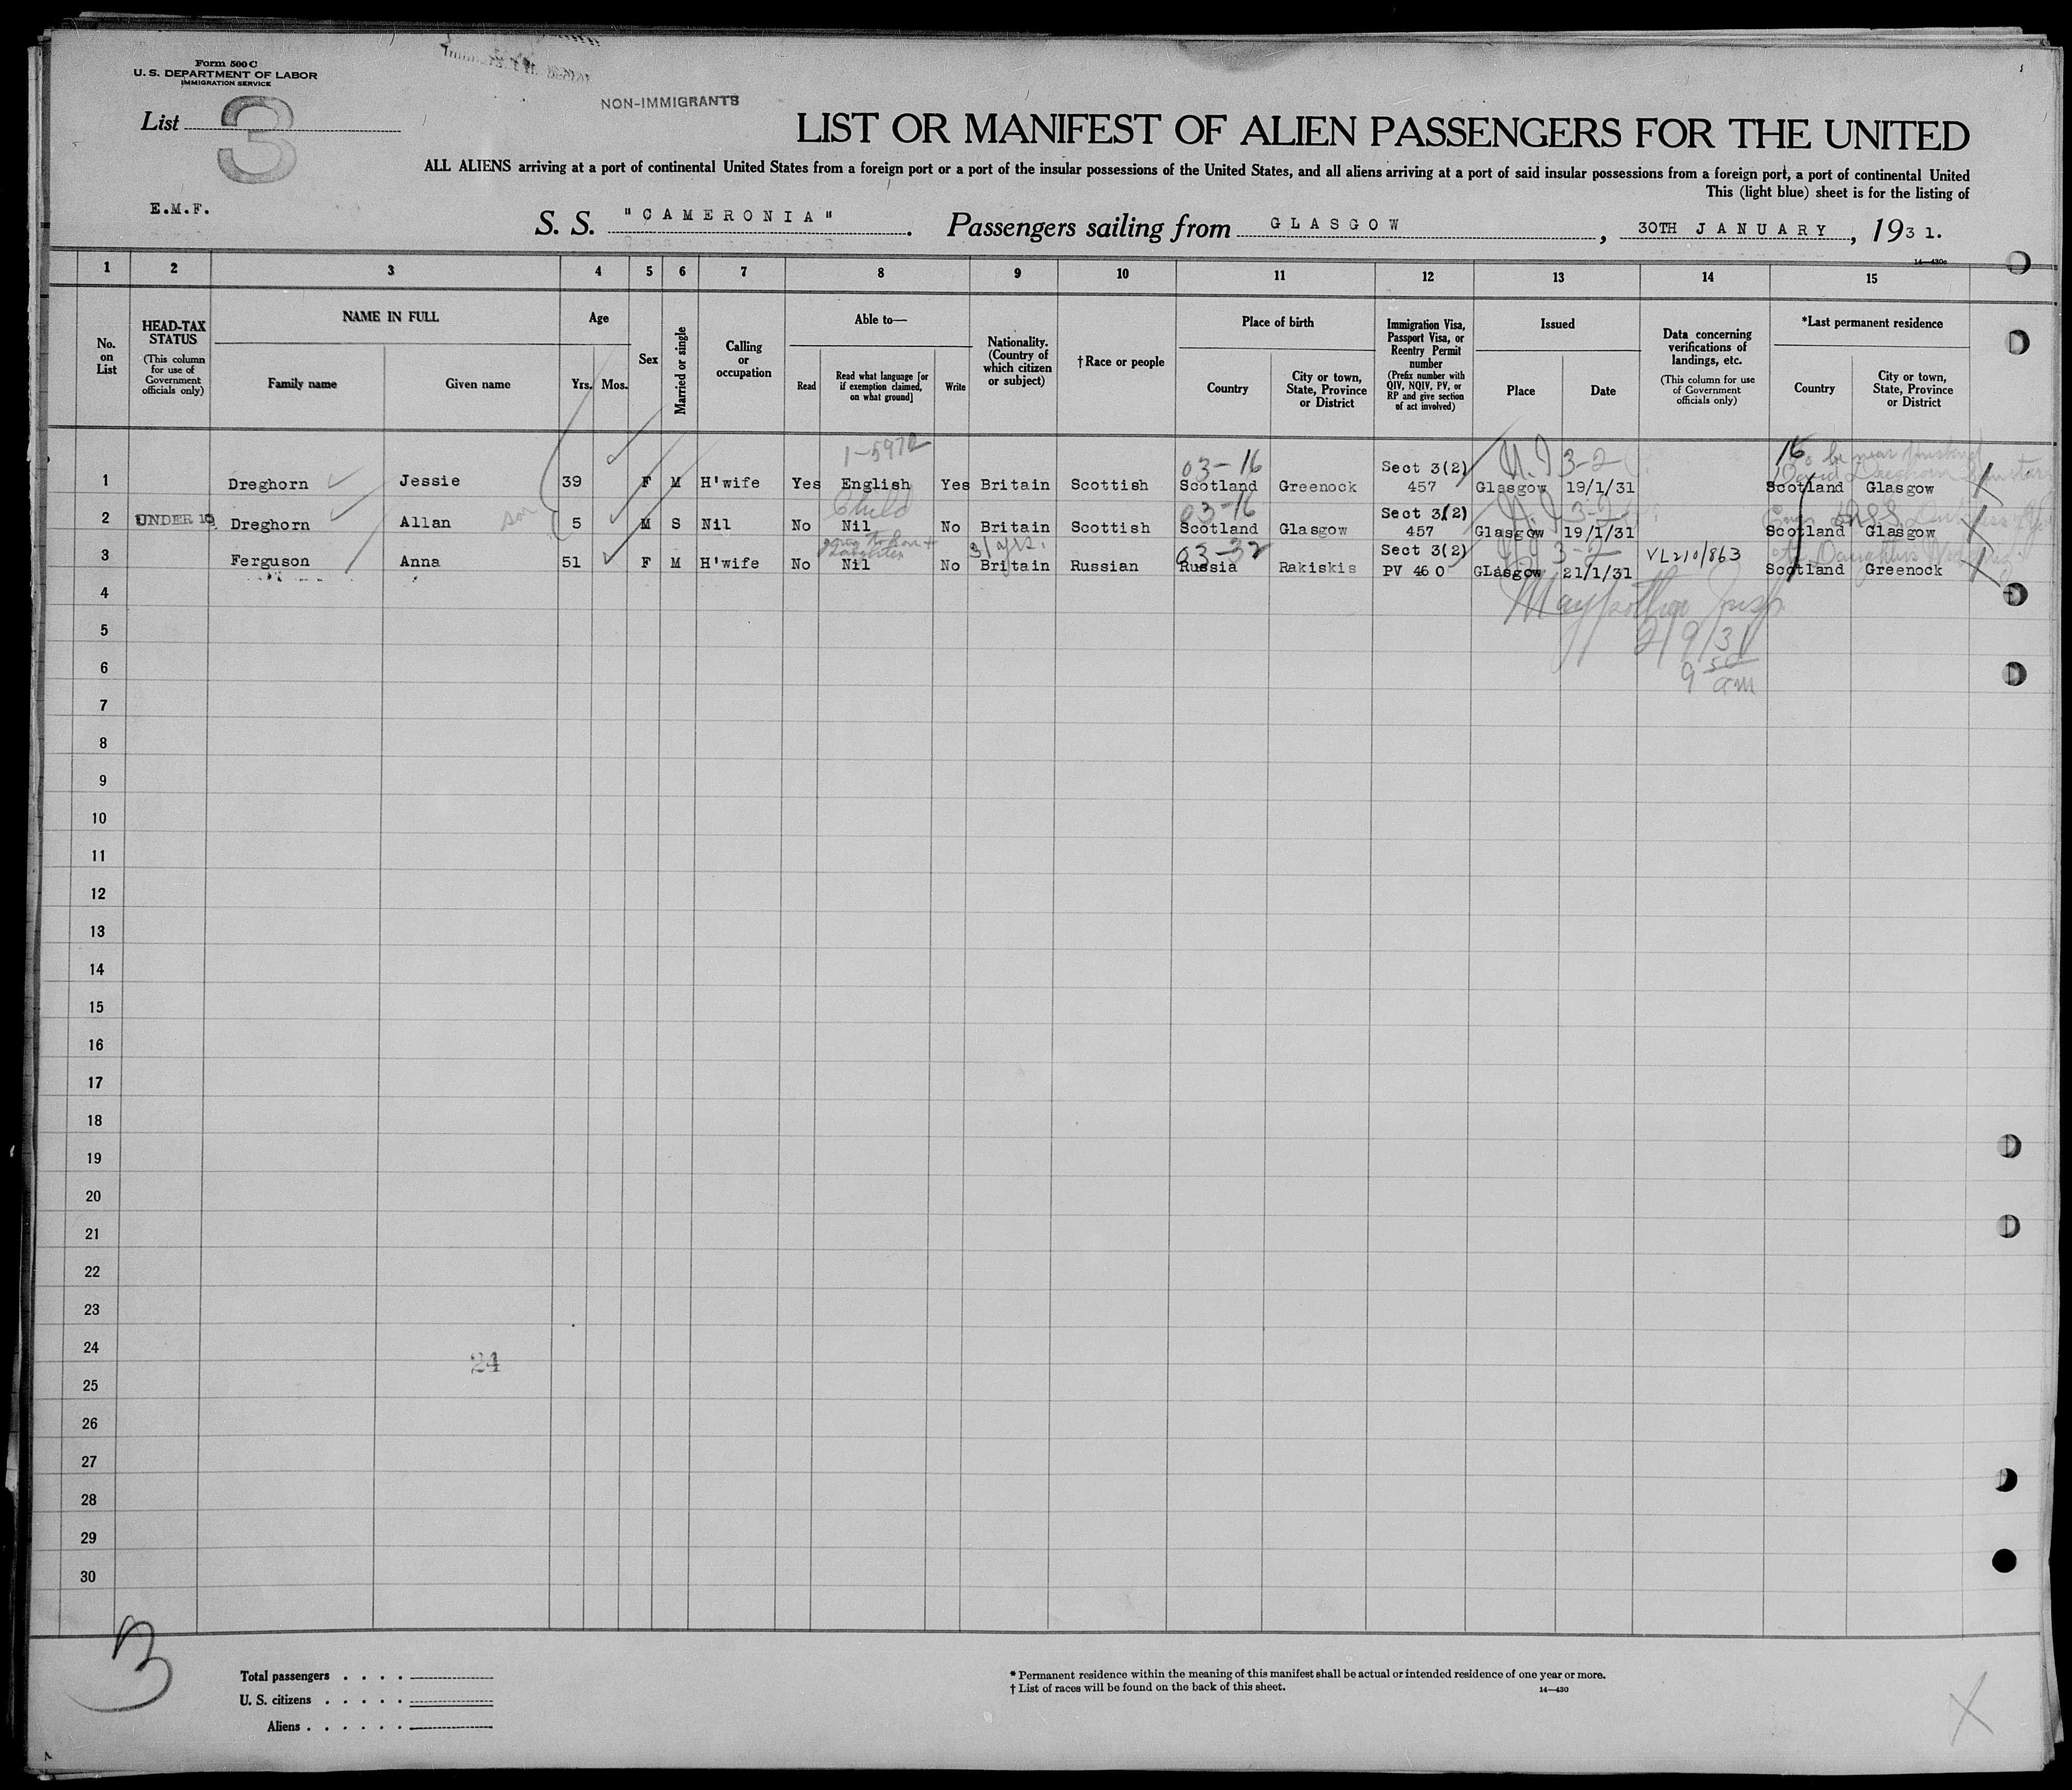 Form 500 C
U. S. DEPARTMENT OF LABOR
IMMIGRATION SERVICE
List 3
NON-IMMIGRANTS
LIST OR MANIFEST OF ALIEN PASSENGERS FOR THE UNITED
ALL ALIENS arriving at a port of continental United States from a foreign port or a port of the insular possessions of the United States, and all aliens arriving at a port of said insular possessions from a foreign port, a port of continental United
This (light blue) sheet is for the listing of
E.M.F.
S. S. "CAMERONIA". Passengers sailing from GLASGOW, 30TH JANUARY, 1931.
14—430a
1 2 3 4 5 6 7 8 9 10 11 12 13 14 15
No. on List
HEAD-TAX STATUS (This column for use of Government officials only)
NAME IN FULL
Family name Given name
Age
Yrs. Mos.
Sex
Married or single
Calling or occupation
Able to—
Read Read what language [or if exemption claimed, on what ground] Write
Nationality. (Country of which citizen or subject)
†Race or people
Place of birth
Country City or town, State, Province or District
Immigration Visa, Passport Visa, or Reentry Permit number (Prefix number with QIV, NQIV, PV, or RP and give section of act involved)
Issued
Place Date
Data concerning verifications of landings, etc. (This column for use of Government officials only)
*Last permanent residence
Country City or town, State, Province or District
1-597 03-16 3-2 16 to be near husband
1 Dreghorn Jessie 39 F M H'wife Yes English Yes Britain Scottish Scotland Greenock Sect 3(2) 457 Glasgow 19/1/31 Scotland Glasgow
son Child 03-16
2 UNDER 16 Dreghorn Allan 5 M S Nil No Nil No Britain Scottish Scotland Glasgow Sect 3(2) 457 Glasgow 19/1/31 Scotland Glasgow
31 yrs. 03-32
3 Ferguson Anna 51 F M H'wife No Nil No Britain Russian Russia Rakiskis Sect 3(2) PV 460 GLasgow 21/1/31 VL210/863 Scotland Greenock
4
5
2/9/31
6
9 50 am
7
8
9
10
11
12
13
14
15
16
17
18
19
20
21
22
23
24
24
25
26
27
28
29
30
3
Total passengers
U. S. citizens
Aliens
* Permanent residence within the meaning of this manifest shall be actual or intended residence of one year or more.
† List of races will be found on the back of this sheet.
14—430